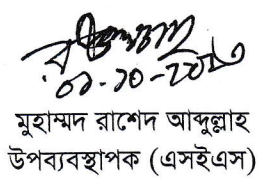 ০১-১০-২০১৩
মুহাম্মদ রাশেদ আব্দুল্লাহ
উপব্যবস্থাপক (এসইএস)